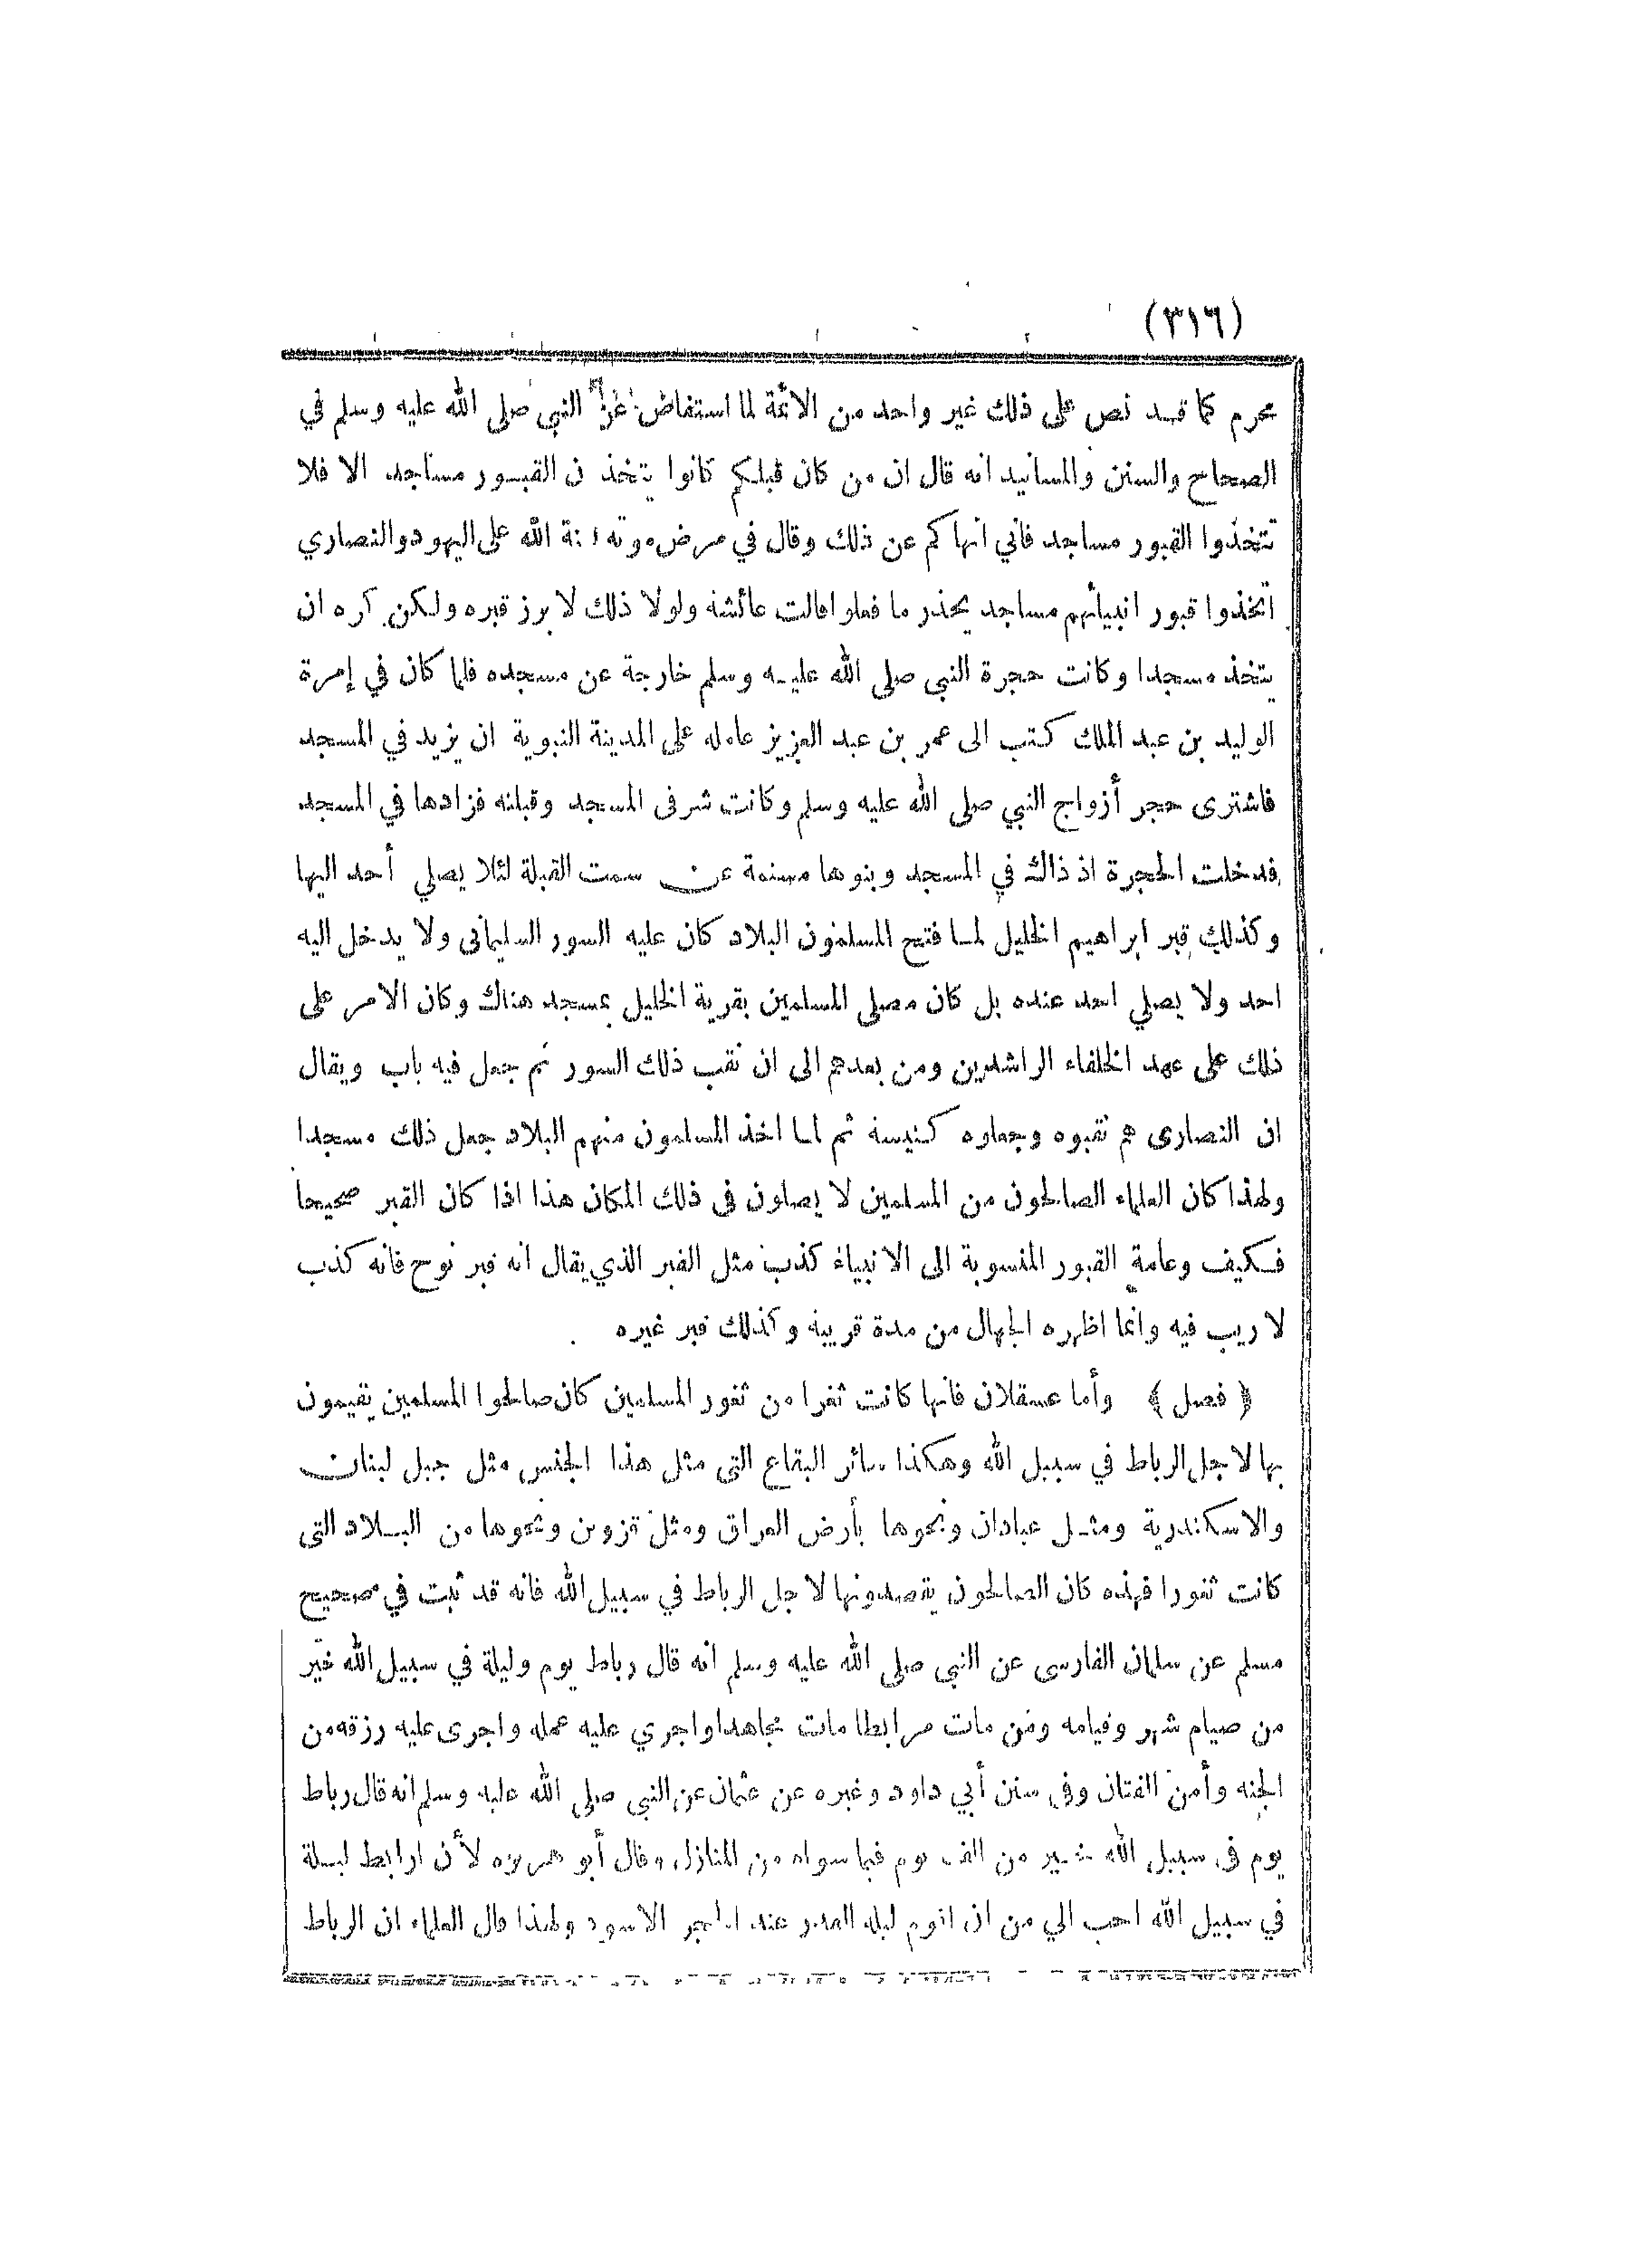 (٣١٦)
محرم كما قد نص على ذلك غير واحد من الائمة لما استفاض عن النبي صلى الله عليه وسلم في
الصحاح والسنن والمسانيد انه قال ان من كان قبلكم كانوا يتخذون القبور مساجد الا فلا
تتخذوا القبور مساجد فاني انهاكم عن ذلك وقال في مرض موته لعنة الله على اليهود والنصاري
اتخذوا قبور انبيائهم مساجد يحذر ما فعلوا قالت عائشة ولولا ذلك لا برز قبره ولكن كره ان
يتخذ مسجدا وكانت حجرة النبي صلى الله عليه وسلم خارجة عن مسجده فلما كان في إمرة
الوليد بن عبد الملك كتب الى عمر بن عبد العزيز عامله على المدينة النبوية ان يزيد في المسجد
فاشترى حجر أزواج النبي صلى الله عليه وسلم وكانت شرقى المسجد وقبلته فزادها في المسجد
فدخلت الحجرة اذ ذاك في المسجد وبنوها مسنمة عن سمت القبلة لئلا يصلي أحد اليها
وكذلك قبر ابراهيم الخليل لما فتح المسلمون البلاد كان عليه السور السليمانى ولا يدخل اليه
احد ولا يصلي احد عنده بل كان مصلى المسلمين بقرية الخليل بمسجد هناك وكان الامر على
ذلك على عهد الخلفاء الراشدين ومن بعدهم الى ان نقب ذلك السور ثم جعل فيه باب ويقال
ان النصارى هم نقبوه وجعلوه كنيسة ثم لما اخذ المسلمون منهم البلاد جعل ذلك مسجدا
ولهذا كان العلماء الصالحون من المسلمين لا يصلون فى ذلك المكان هذا اذا كان القبر صحيحا
فكيف وعامة القبور المنسوبة الى الانبياء كذب مثل القبر الذي يقال انه قبر نوح فانه كذب
لا ريب فيه وانما اظهره الجهال من مدة قريبة وكذلك قبر غيره
﴿ فصل ﴾ وأما عسقلان فانها كانت ثغرا من ثغور المسلمين كان صالحوا المسلمين يقيمون
بها لاجل الرباط في سبيل الله وهكذا سائر البقاع التى مثل هذا الجنس مثل جبل لبنان
والاسكندرية ومثل عبادان ونحوها بأرض العراق ومثل قزوين ونحوها من البلاد التى
كانت ثغورا فهذه كان الصالحون يقصدونها لاجل الرباط في سبيل الله فانه قد ثبت في صحيح
مسلم عن سلمان الفارسى عن النبي صلى الله عليه وسلم انه قال رباط يوم وليلة في سبيل الله خير
من صيام شهر وقيامه ومن مات مرابطا مات مجاهدا واجري عليه عمله واجرى عليه رزقه من
الجنه وأمن الفتان وفى سنن أبي داود وغيره عن عثمان عن النبى صلى الله عليه وسلم انه قال رباط
يوم فى سبيل الله خير من الف يوم فيما سواه من المنازل وقال أبو هريره لأن ارابط ليلة
في سبيل الله احب الي من ان اقوم ليله القدر عند الحجر الاسود ولهذا قال العلماء ان الرباط